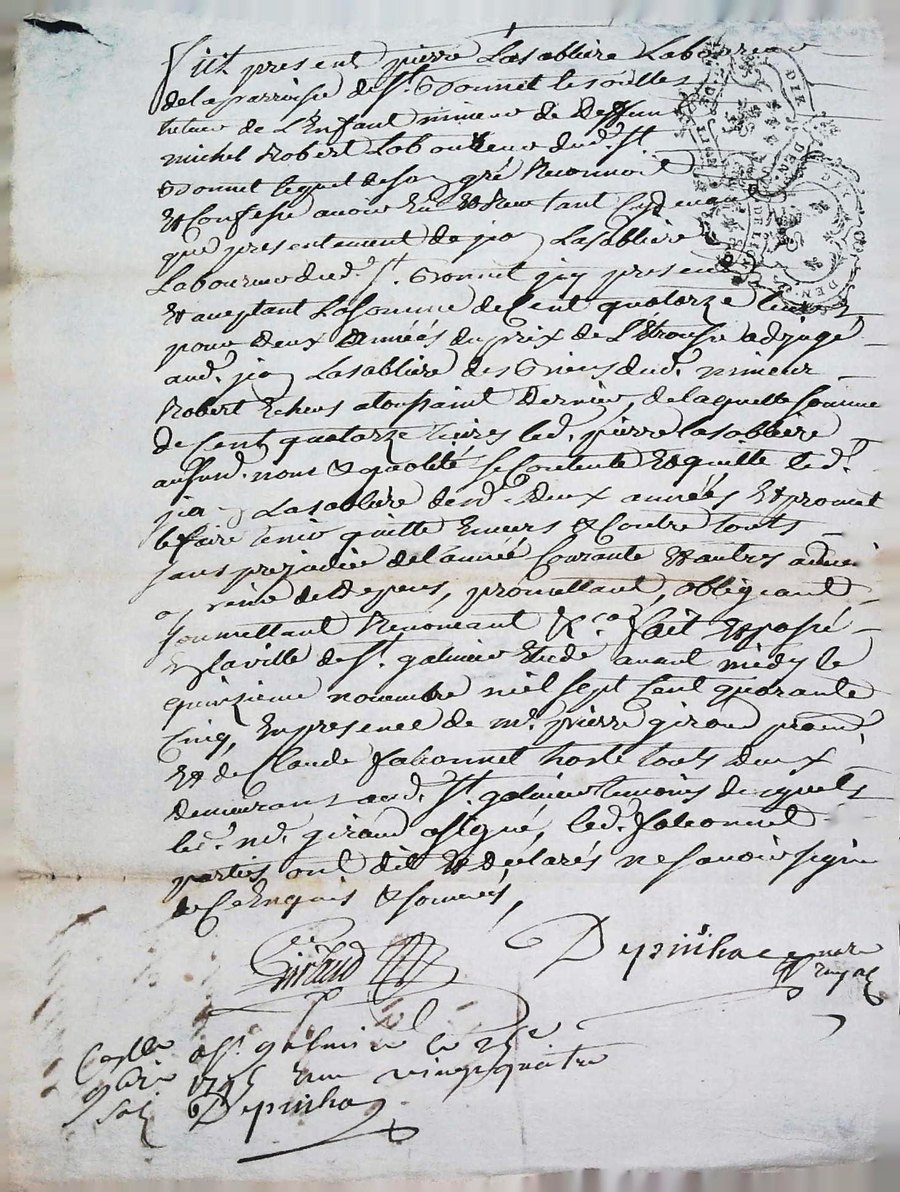 Fut present pierre Lasabliere Laboureur
de la parroisse de St. Bonnet les oulles
tuteur de L'Enfant mineur de Deffunt
michel Robert Laboureur dud. St.
Bonnet lequel de son gré Reconnoit
Et Confesse avoir Eu Et Receu tant Cydevant
que presentement de jean Lasabliere
Laboureur dud. St. Bonnet jcy present
Et aceptant La somme de Cent quatorze livres
pour deux années du prix de L'Etrousse adjugé
aud. jean Lasabliere des Biens dud. mineur
Robert Echeus a toussaint Dernier, de laquelle somme
de Cent quatorze livres led. pierre Lasabliere
aususd. nom & qualité se Contente Et quitte led.
jean Lasabliere desd. Deux années Et promet
le faire tenir quitte Envers & Contre touts
sans prejudice de l'année Courante Et autres
a peine de Depens, promettant, obligeant
soumettant Renonceant &ca fait Et passé
En la ville de St. galmier Etude avant midy le
quinzieme novembre mil sept Cent quarante
Cinq, En presence de me. pierre giraud
Et de Claude fabonnet hoste touts deux
Demeurans aud. St. galmier temoins desquels
led. me. giraud a signé, led. fabonnet
parties ont dit Et declarés ne savoir signer
de Ce Enquis & sommés,
Giraud
Depinhac nore
royal
a St. galmier le 25e
1745 vingt quatre
sols Depinhac